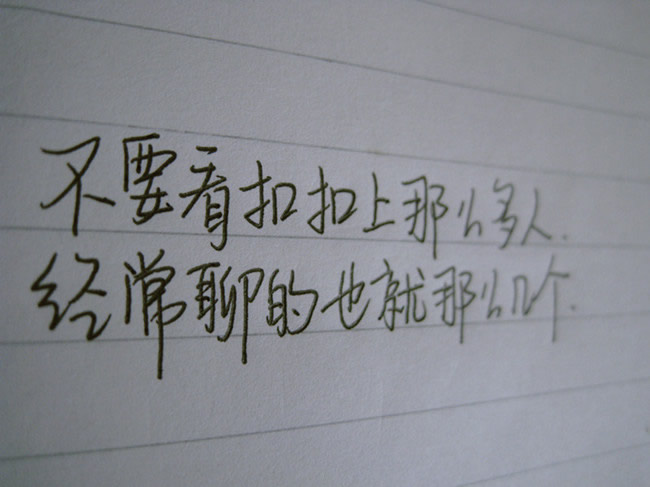 不要看扣扣上那么多人.
经常聊的也就那么几个.